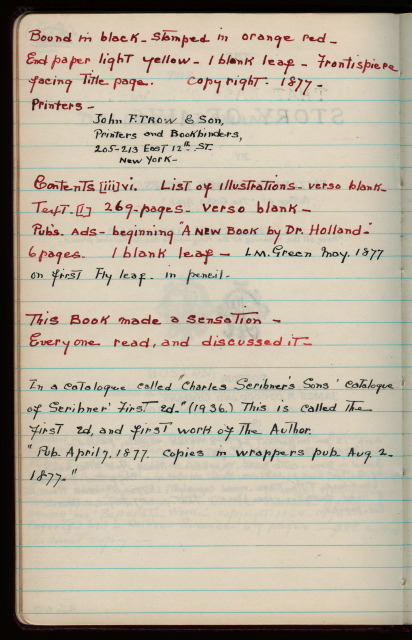 Bound in black - stamped in orange red -
End paper light yellow - 1 blank leaf - Frontispiere
facing Title page. Copyright - 1877 -
Printers -
John F. TROW & Son,
Printers and Bookbinders,
205-213 East 12th ST.
New York -
Contents [iii] vi. List of illustrations - verso blank -
Text. [1] 269 - pages - verso blank -
Pub's. Ads - beginning "A New Book by Dr. Holland -"
6 pages. 1 blank leaf - L.M. Green May. 1877
on first Fly leaf - in pencil -
This Book made a sensation -
Everyone read, and discussed it -
In a catalogue called "Charles Scribner's Sons' catalogue
of Scribner' First Ed." (1936.) This is called the
first Ed, and first work of The Author.
"Pub. April 7. 1877. Copies in wrappers pub. Aug 2 -
1877."